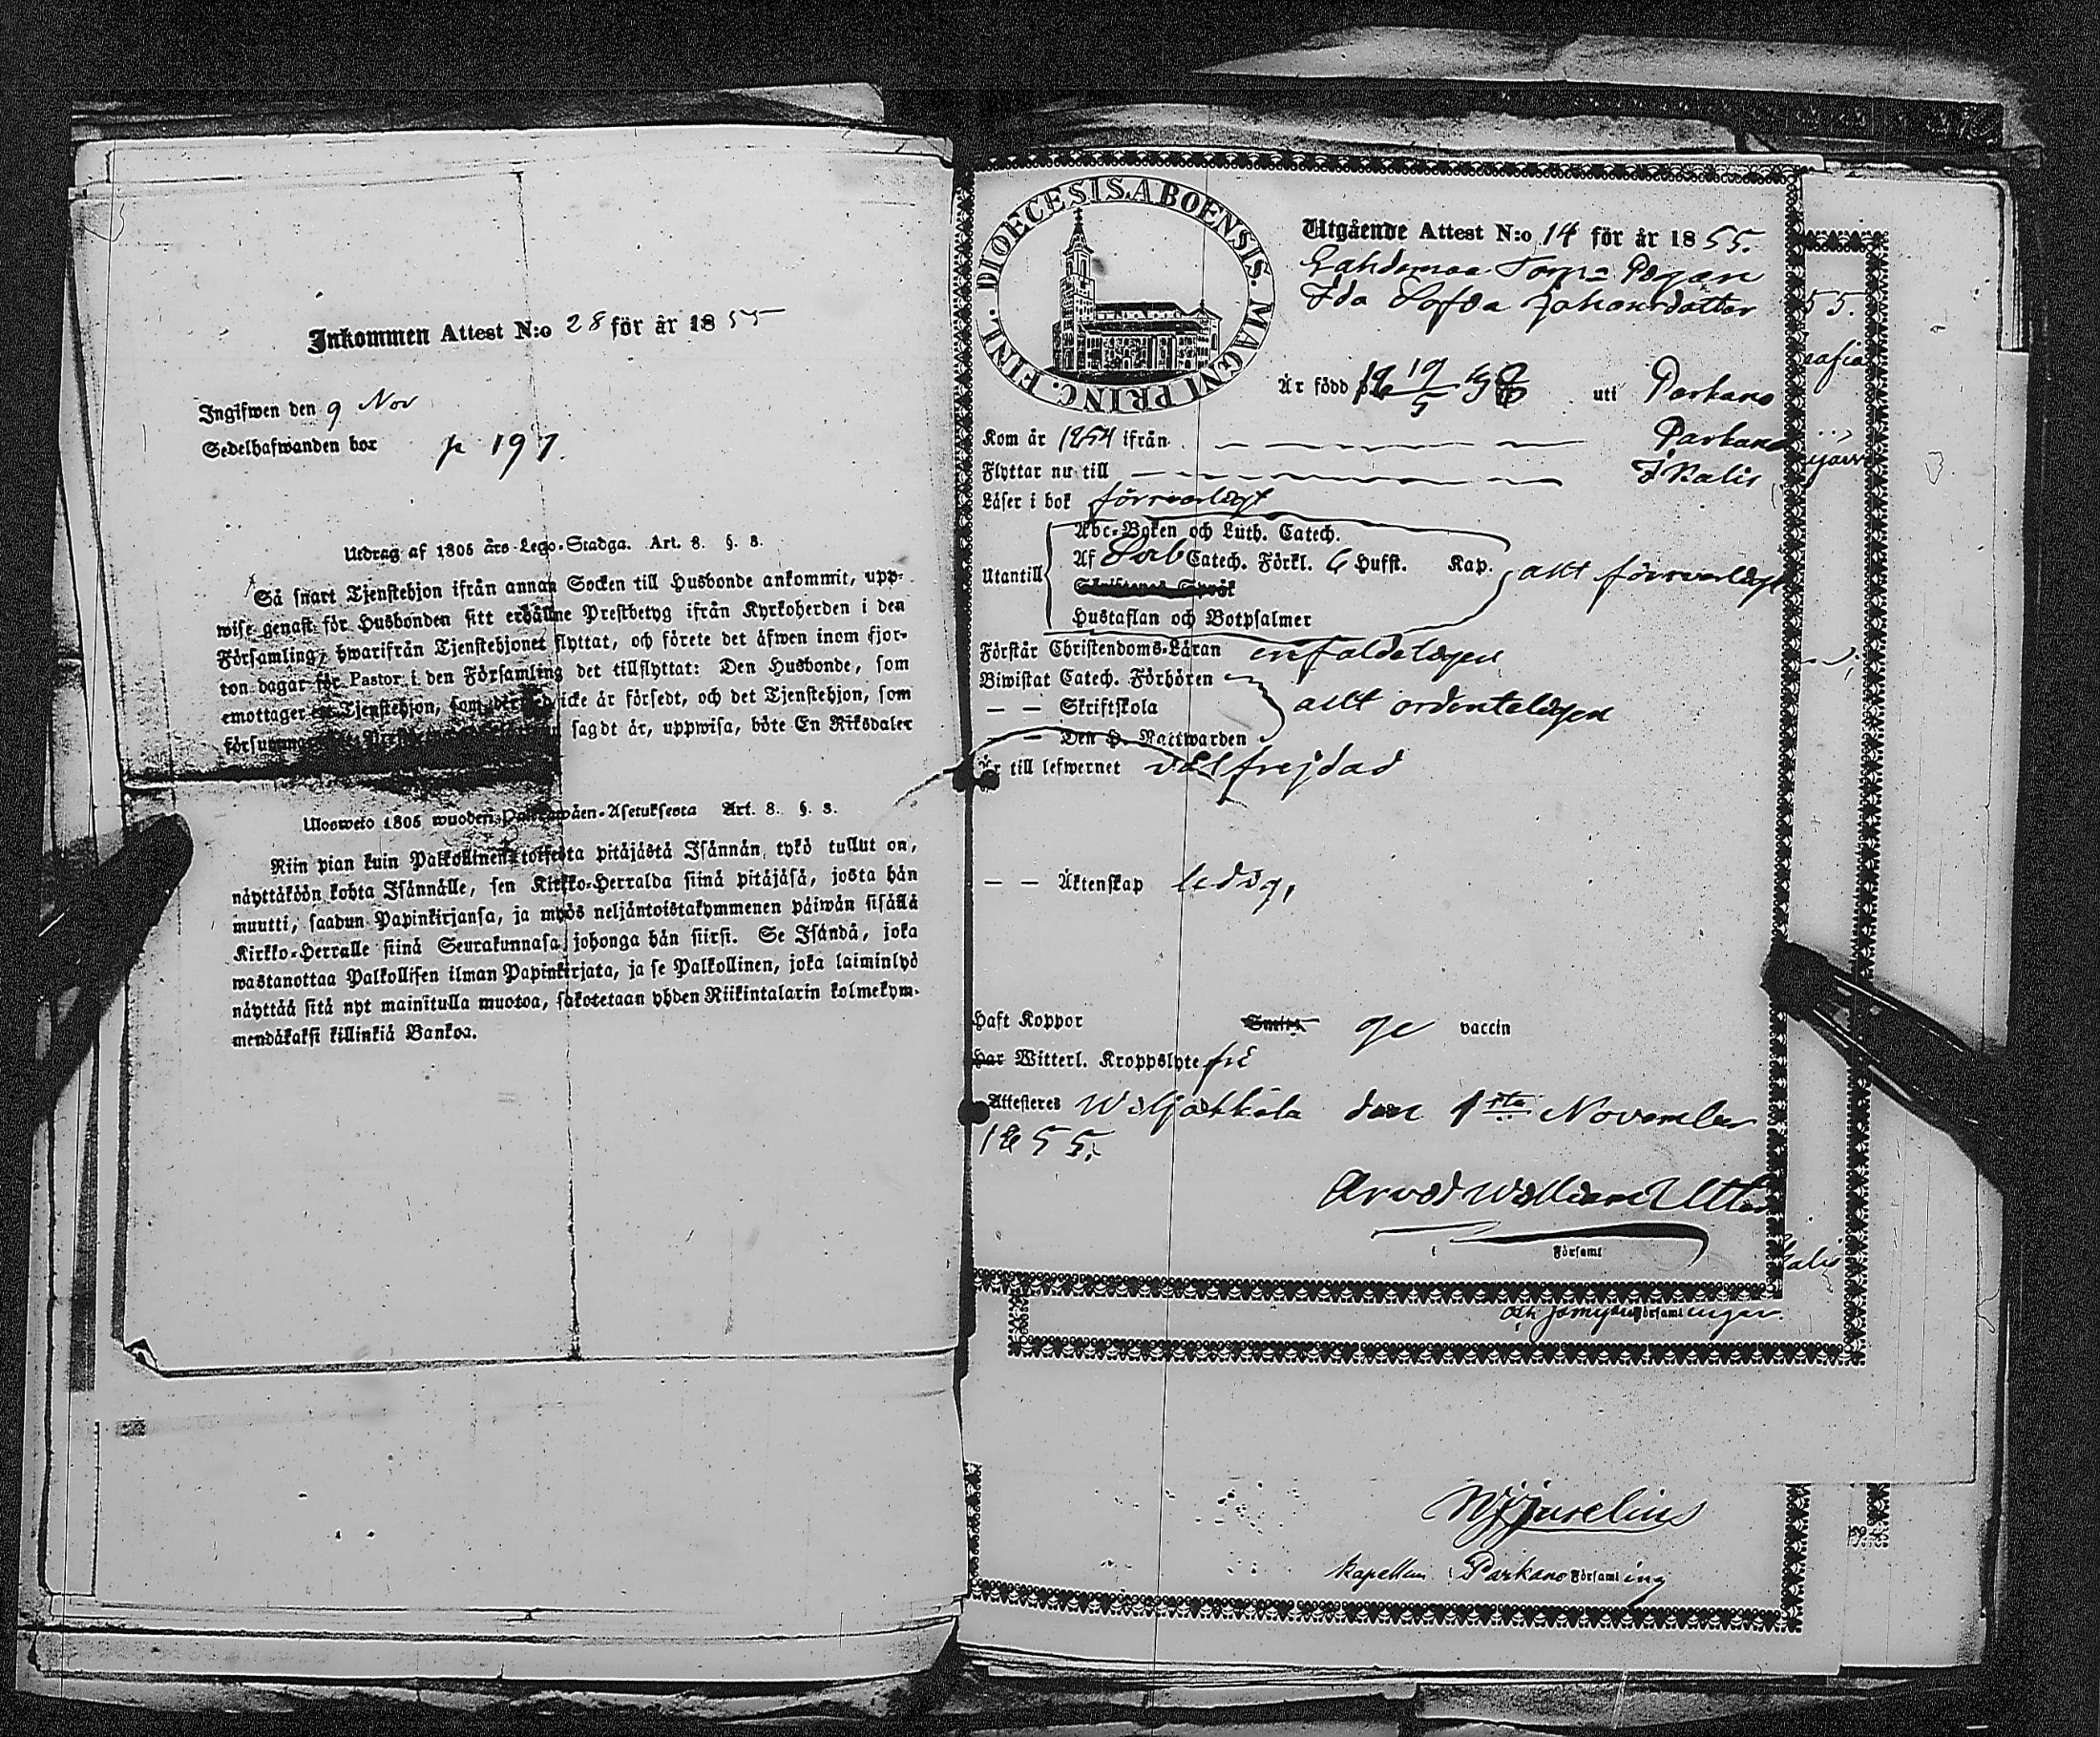 Inkommen Attest N:o 28 för år 1855
Ingifwen den 9 Nov
Sedelhafwanden bor p 197.
Utdrag af 1805 års Lego-Stadga. Art. 8. §. 8.
Så snart Tjenstehjon ifrån annan Socken till Husbonde ankommit, upp-
wise genast för Husbonden sitt erhållne Prestbetyg ifrån Kyrkoherden i den
Församling, hwarifrån Tjenstehjonet flyttat, och förete det äfwen inom fjor-
ton dagar för Pastor i den Församling det tillflyttat: Den Husbonde, som
emottager Tjenstehjon, som icke är försedt, och det Tjenstehjon, som
sagdt är, uppwisa, böte En Riksdaler
Ulosweto 1805 wuoden Asetuksesta Art. 8. §. 8.
Niin pian kuin Palkollinen toisesta pitäjästä Isännän tykö tullut on,
näyttäköön kohta Isännälle, sen Kirkko-Herralda siinä pitäjäsä, josta hän
muutti, saadun Papinkirjansa, ja myös neljäntoistakymmenen päiwän sisällä
Kirkko-Herralle siinä Seurakunnasa johonga hän siirsi. Se Isändä, joka
wastanottaa Palkollisen ilman Papinkirjata, ja se Palkollinen, joka laiminlyö
näyttää sitä nyt mainitulla muotoa, sakotetaan yhden Riikintalarin kolmekym-
mendäkaksi killinkiä Bankoa.
DIOECESIS ABOENSIS. MAGNI PRINC. FINL.
Utgående Attest N:o 14 för år 1855.
Ida Sofia Johansdotter
Är född 19/5 uti Parkano
Kom år 1854 ifrån Parkano
Flyttar nu till Ikalis
Läser i bok försvarligt
Abc-Boken och Luth. Catech.
Utantill Af Sveb Catech. Förkl. 6 Hufst. Kap. allt försvarligt
Hustaflan och Botpsalmer
Förstår Christendoms-Läran enfaldeligen
Biwistat Catech. Förhören
— — Skriftskola allt ordenteligen
— — Den H. Nattwarden
Är till lefwernet välfrejdad
— — Äktenskap ledig,
Haft Koppor ge vaccin
Har Witterl. Kroppslyte fri
Attesteres Wiljakkala den 1sta November
1855.
Arvid William
i Församl
55.
och Församlingar
alis
Kapellan i Parkano Församling